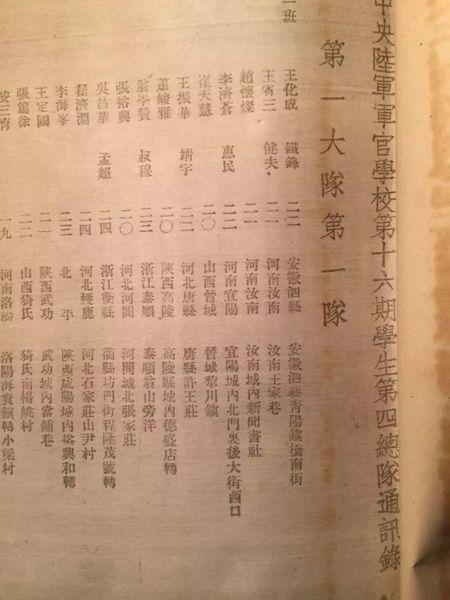 中央陸軍軍官學校第十六期學生第四總隊通訊錄
第一大隊第一隊
一班
王化成 鐵錚 二二 安徽泗縣 安徽泗縣青陽鎮橋南街
王省三 健夫 二一 河南汝南 汝南王家巷
趙懷燦 二一 河南汝南 汝南城內新聞書社
李濟蒼 惠民 二二 河南宜陽 宜陽城內北門裏後大街西口
崔天慧 二〇 山西晉城 晉城犂川鎮
王振華 靖宇 二一 河北唐縣 唐縣許王莊
蕭峻雅 二〇 陝西高陵 高陵縣城內德盛店轉
翁學贊 叔穆 二三 浙江泰順 泰順翁山旁洋
張裕興 二〇 河北河間 河間城北張家莊
吳昌華 孟超 二四 浙江衢縣 衢縣坊門街程隆茂號轉
翟濟淵 二四 河北獲鹿 河北石家莊山尹村
李海峯 二三 北平 陝西咸陽城內裕興和轉
王定國 二一 陝西武功 武功城內當鋪巷
張篤徐 二二 山西猗氏 猗氏南楊姚村
安三育 一九 河南洛陽 洛陽海資鎮轉小梁村